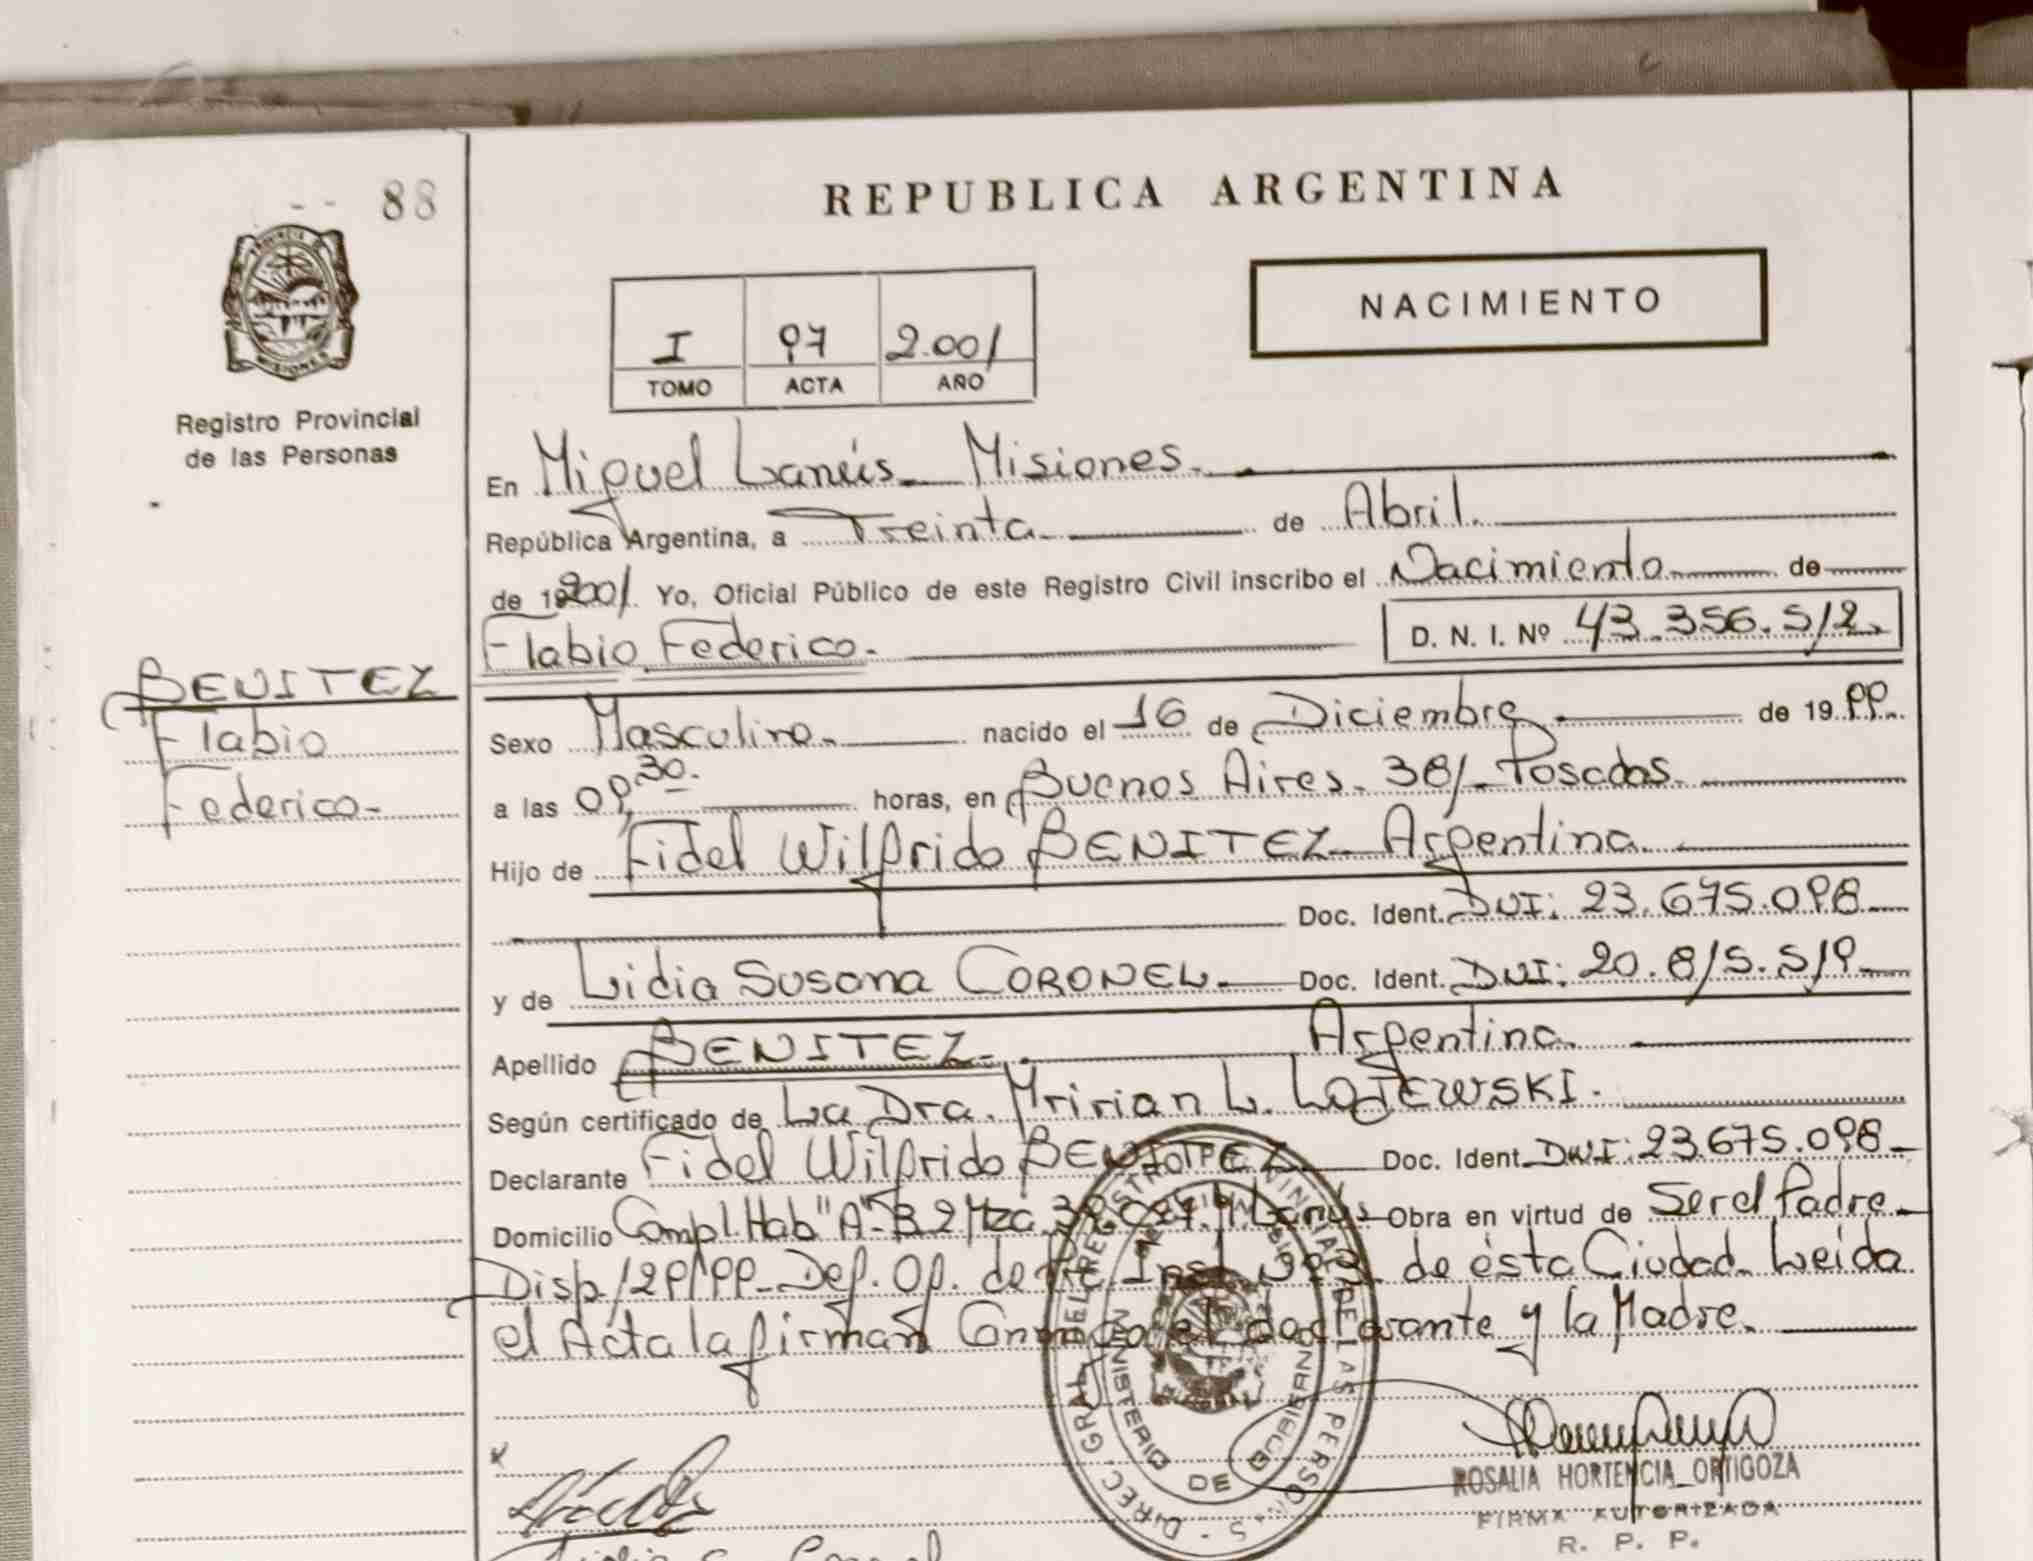 88
REPUBLICA ARGENTINA
PROVINCIA DE
MISIONES
NACIMIENTO
I 97 2.001
TOMO ACTA AÑO
Registro Provincial
de las Personas
En Miguel Lanús - Misiones.
República Argentina, a Treinta de Abril.
de 19 2001. Yo, Oficial Público de este Registro Civil inscribo el Nacimiento de
Flabio Federico. D. N. I. Nº 43.356.512.
BENITEZ
Flabio
Federico.
Sexo Masculino. nacido el 16 de Diciembre de 19 99.
a las 09,30. horas, en Buenos Aires. 381 - Posadas.
Hijo de Fidel Wilfrido BENITEZ - Argentina.
Doc. Ident. DNI: 23.675.098
y de Lidia Susana CORONEL. Doc. Ident. DNI: 20.815.519
Apellido BENITEZ. Argentina.
Según certificado de La Dra. Miririan L. LAJEWSKI.
Declarante Fidel Wilfrido BENITEZ Doc. Ident. DNI: 23.675.098
Domicilio Compl. Hab "A" - B 2 Mza Lanús - Obra en virtud de Ser el Padre.
Disp/ 29/99 - Dep. Op. de de ésta Ciudad. Leida
el Acta la firman Conmigo el declarante y la Madre.
DIREC. GRAL. DEL REGISTRO PROVINCIAL DE LAS PERSONAS
MINISTERIO DE GOBIERNO
ROSALIA HORTENCIA ORTIGOZA
FIRMA AUTORIZADA
R. P. P.